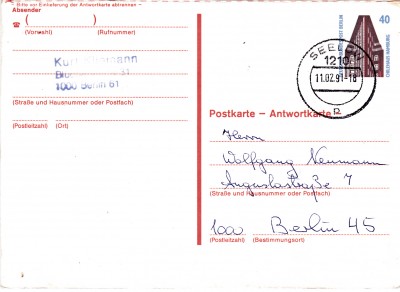 Bitte vor Einlieferung der Antwortkarte abtrennen
Absender
☎ ( )
(Vorwahl) (Rufnummer)
Kurt
1000 Berlin 61
(Straße und Hausnummer oder Postfach)
(Postleitzahl) (Ort)
DEUTSCHE BUNDESPOST BERLIN
40
CHILEHAUS HAMBURG
1210
11.02.91-18
n
Postkarte – Antwortkarte
Herrn
Wolfgang Neumann
Augustastraße 7
(Straße und Hausnummer oder Postfach)
1000 Berlin 45
(Postleitzahl) (Bestimmungsort)